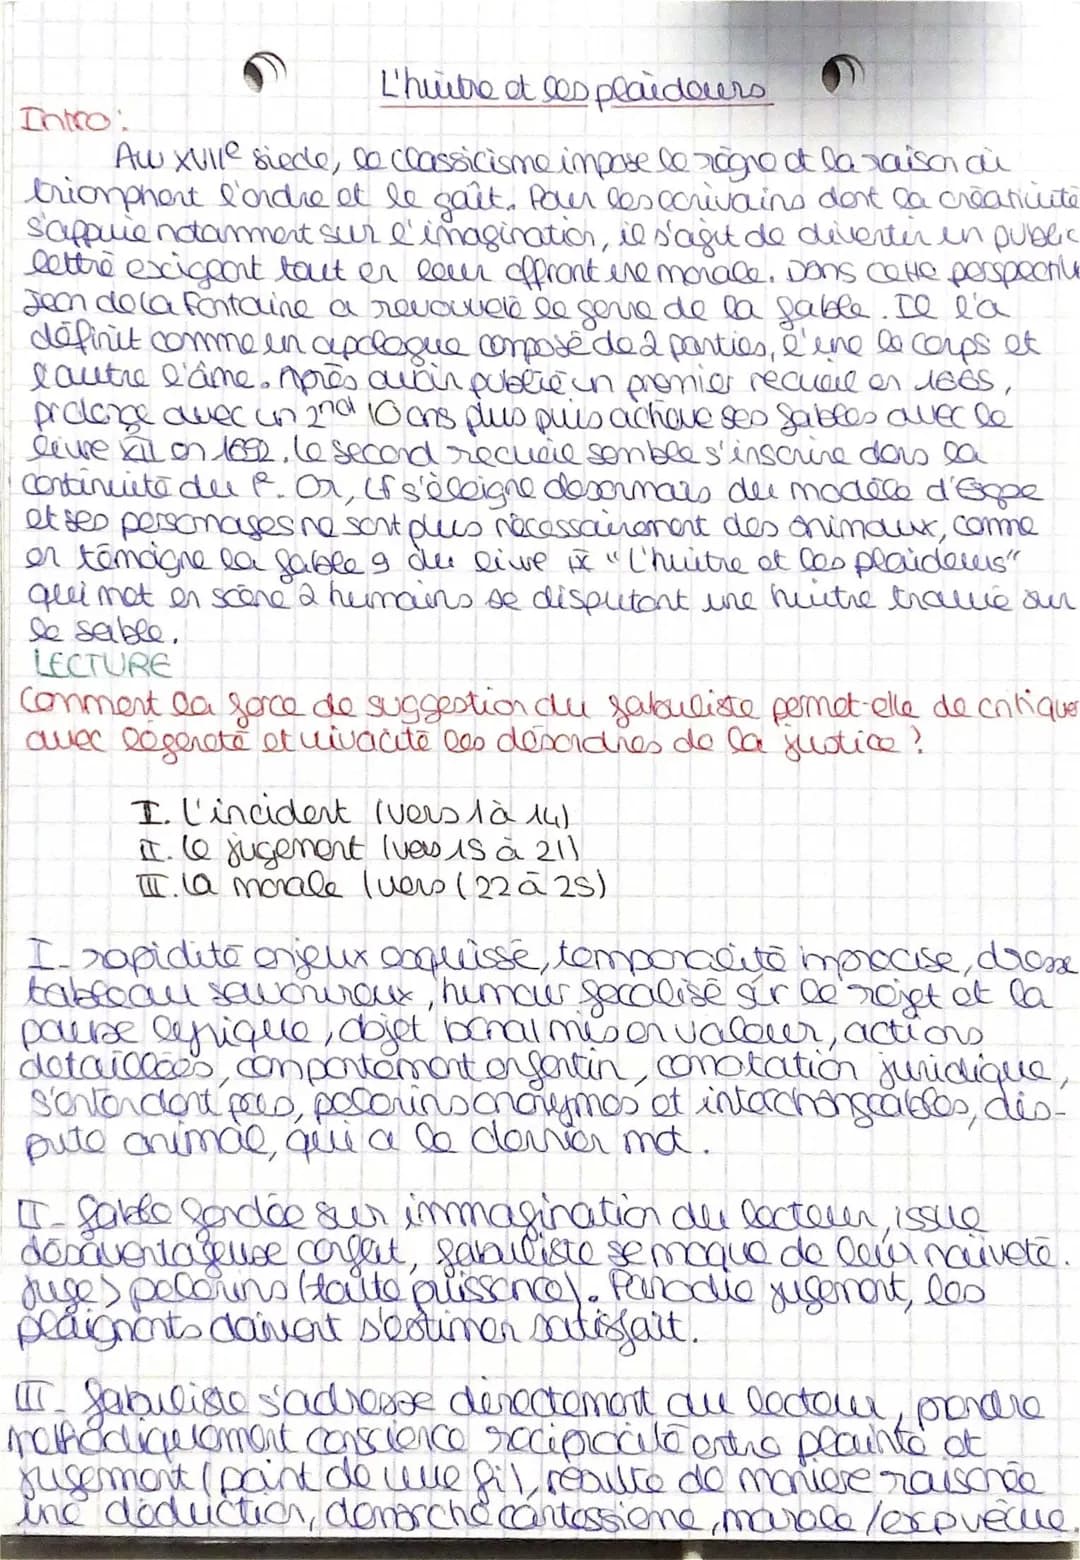 L'huitre et les plaideurs
Intro:
Au XVIIe siecle, le classicisme impose le règne et la raison où
triomphent l'ordre et le goût. Pour les écrivains dont la créativité
s'appuie notamment sur l'imagination, il s'agit de divertir un public
lettré exigeant tout en leur offrant une morale. Dans cette perspective
Jean de la Fontaine a renouvelé le genre de la fable. Il l'a
définit comme un apologue composé de 2 parties, l'une le corps et
l'autre l'âme. Après avoir publié un premier recueil en 1668,
prolonge avec un 2nd 10 ans plus puis achève ses fables avec le
livre XII en 1692. Le second recueil semble s'inscrire dans la
continuité du P. Or, LF s'éloigne desormais du modèle d'Esope
et ses personages ne sont plus nécessairement des animaux, comme
en témoigne la fable 9 du livre IX "L'huitre et les plaideurs"
qui met en scène 2 humains se disputant une huitre trouvé sur
le sable.
LECTURE
Comment la force de suggestion du fabuliste permet-elle de critiquer
avec légereté et vivacité les désordres de la justice ?
I. L'incident (vers 1 à 14)
II. Le jugement (vers 15 à 21)
III. La morale (vers (22 à 25)
I - rapidité enjeux esquissé, temporalité imprecise, dresse
tableau savoureux, humour focalisé sur le rejet et la
pause lyrique, objet banal mis en valeur, actions
detaillées, comportement enfantin, conotation juridique,
s'entendent pas, pelerins anonymes et interchangeables, dis-
pute animale, qui a le dernier mot.
II - fable fondée sur immagination du lecteur, issue
désaventageuse conflit, fabuliste se moque de leur naïveté.
Juge > pelerins (toute puissance). Parodie jugement, les
plaignants doivent s'estimer satisfait.
III - fabuliste s'adresse directement au lecteur, prendre
methodiquement conscience réciprocité entre plainte et
jugement (point de vue fil), résulte de manière raisonée
une déduction, demarche cartessiene, morale /